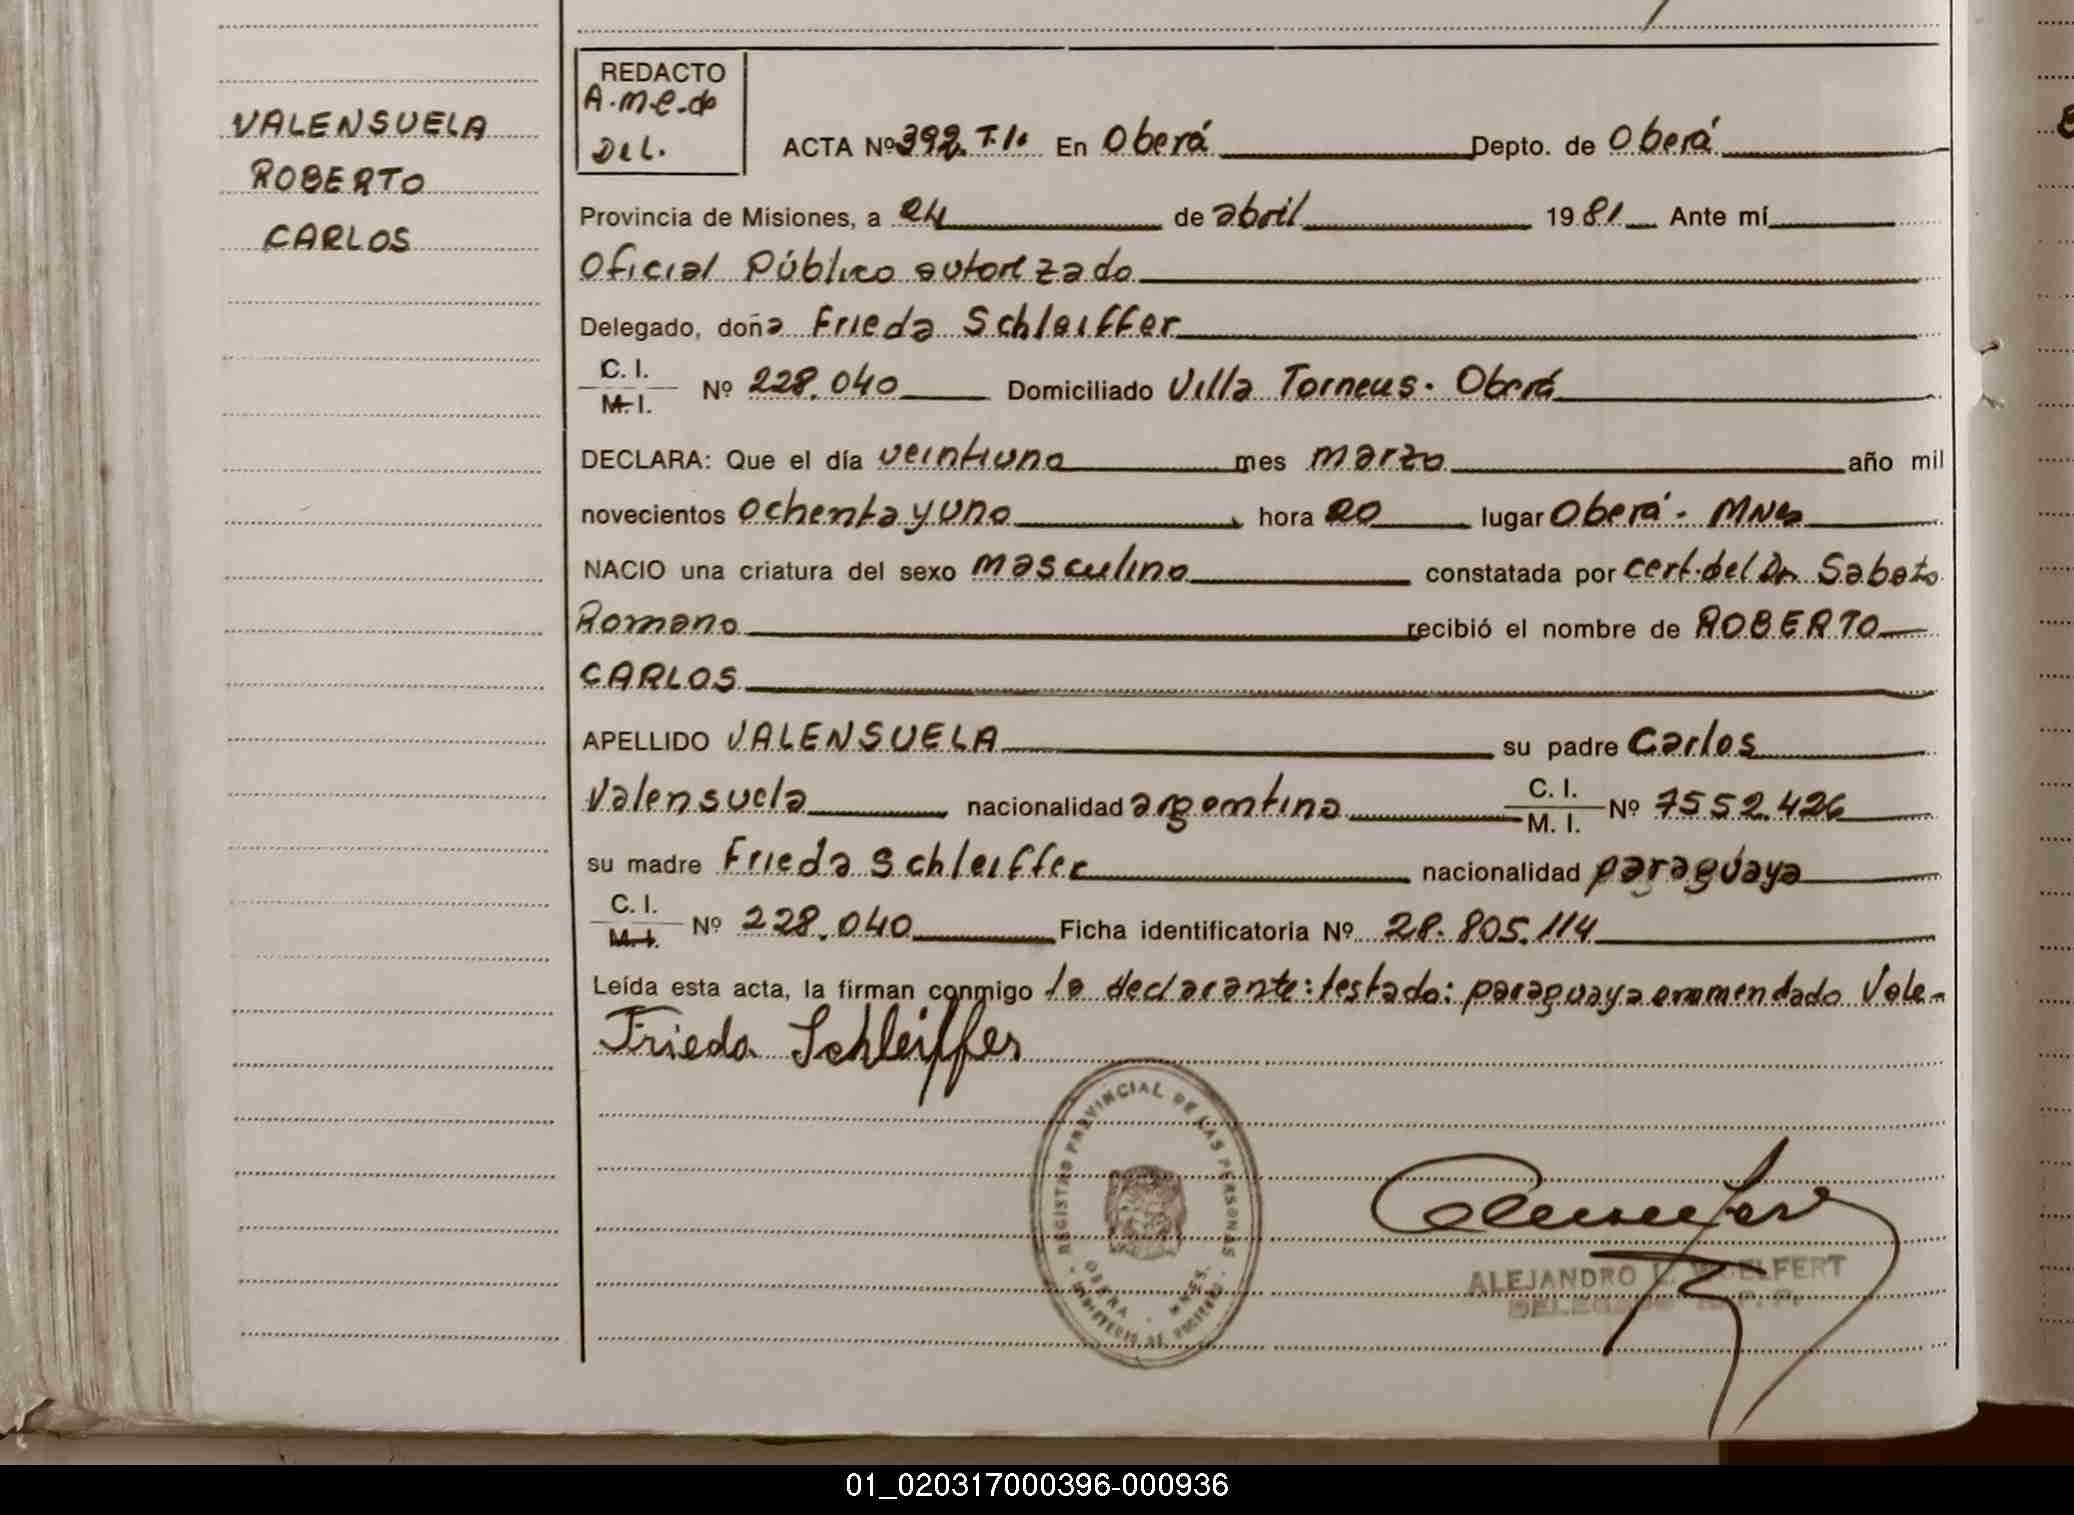 VALENSUELA
ROBERTO
CARLOS
REDACTO
A.M.E. de
Del.
ACTA Nº 392. T.I. En Oberá Depto. de Oberá
Provincia de Misiones, a 24 de abril 1981 Ante mí
Oficial Público autorizado
Delegado, doña Frieda Schleiffer
C. I.
M. I. Nº 228.040 Domiciliado Villa Torneus. Oberá
DECLARA: Que el día veintiuno mes marzo año mil
novecientos ochenta y uno hora 20 lugar Oberá - Mnes
NACIO una criatura del sexo masculino constatada por cert. del Dr. Sabato
Romano recibió el nombre de ROBERTO
CARLOS
APELLIDO VALENSUELA su padre Carlos
Valensuela nacionalidad argentina C. I. M. I. Nº 7552.426
su madre Frieda Schleiffer nacionalidad paraguaya
C. I.
M. I. Nº 228.040 Ficha identificatoria Nº 28.805.114
Leída esta acta, la firman conmigo la declarante: testado: paraguaya enmendado Vale-
Frieda Schleiffer
REGISTRO PROVINCIAL DE LAS PERSONAS
OBERA - MNES.
ALEJANDRO L. WOELFERT
DELEGADO R. P. P.
01_020317000396-000936